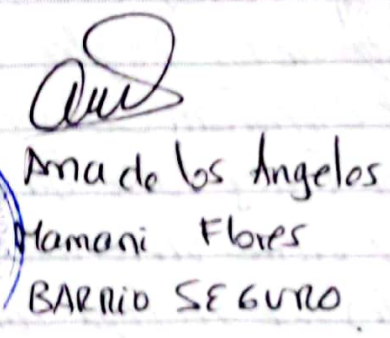 Ana de los Angeles
Mamani Flores
BARRIO SEGURO